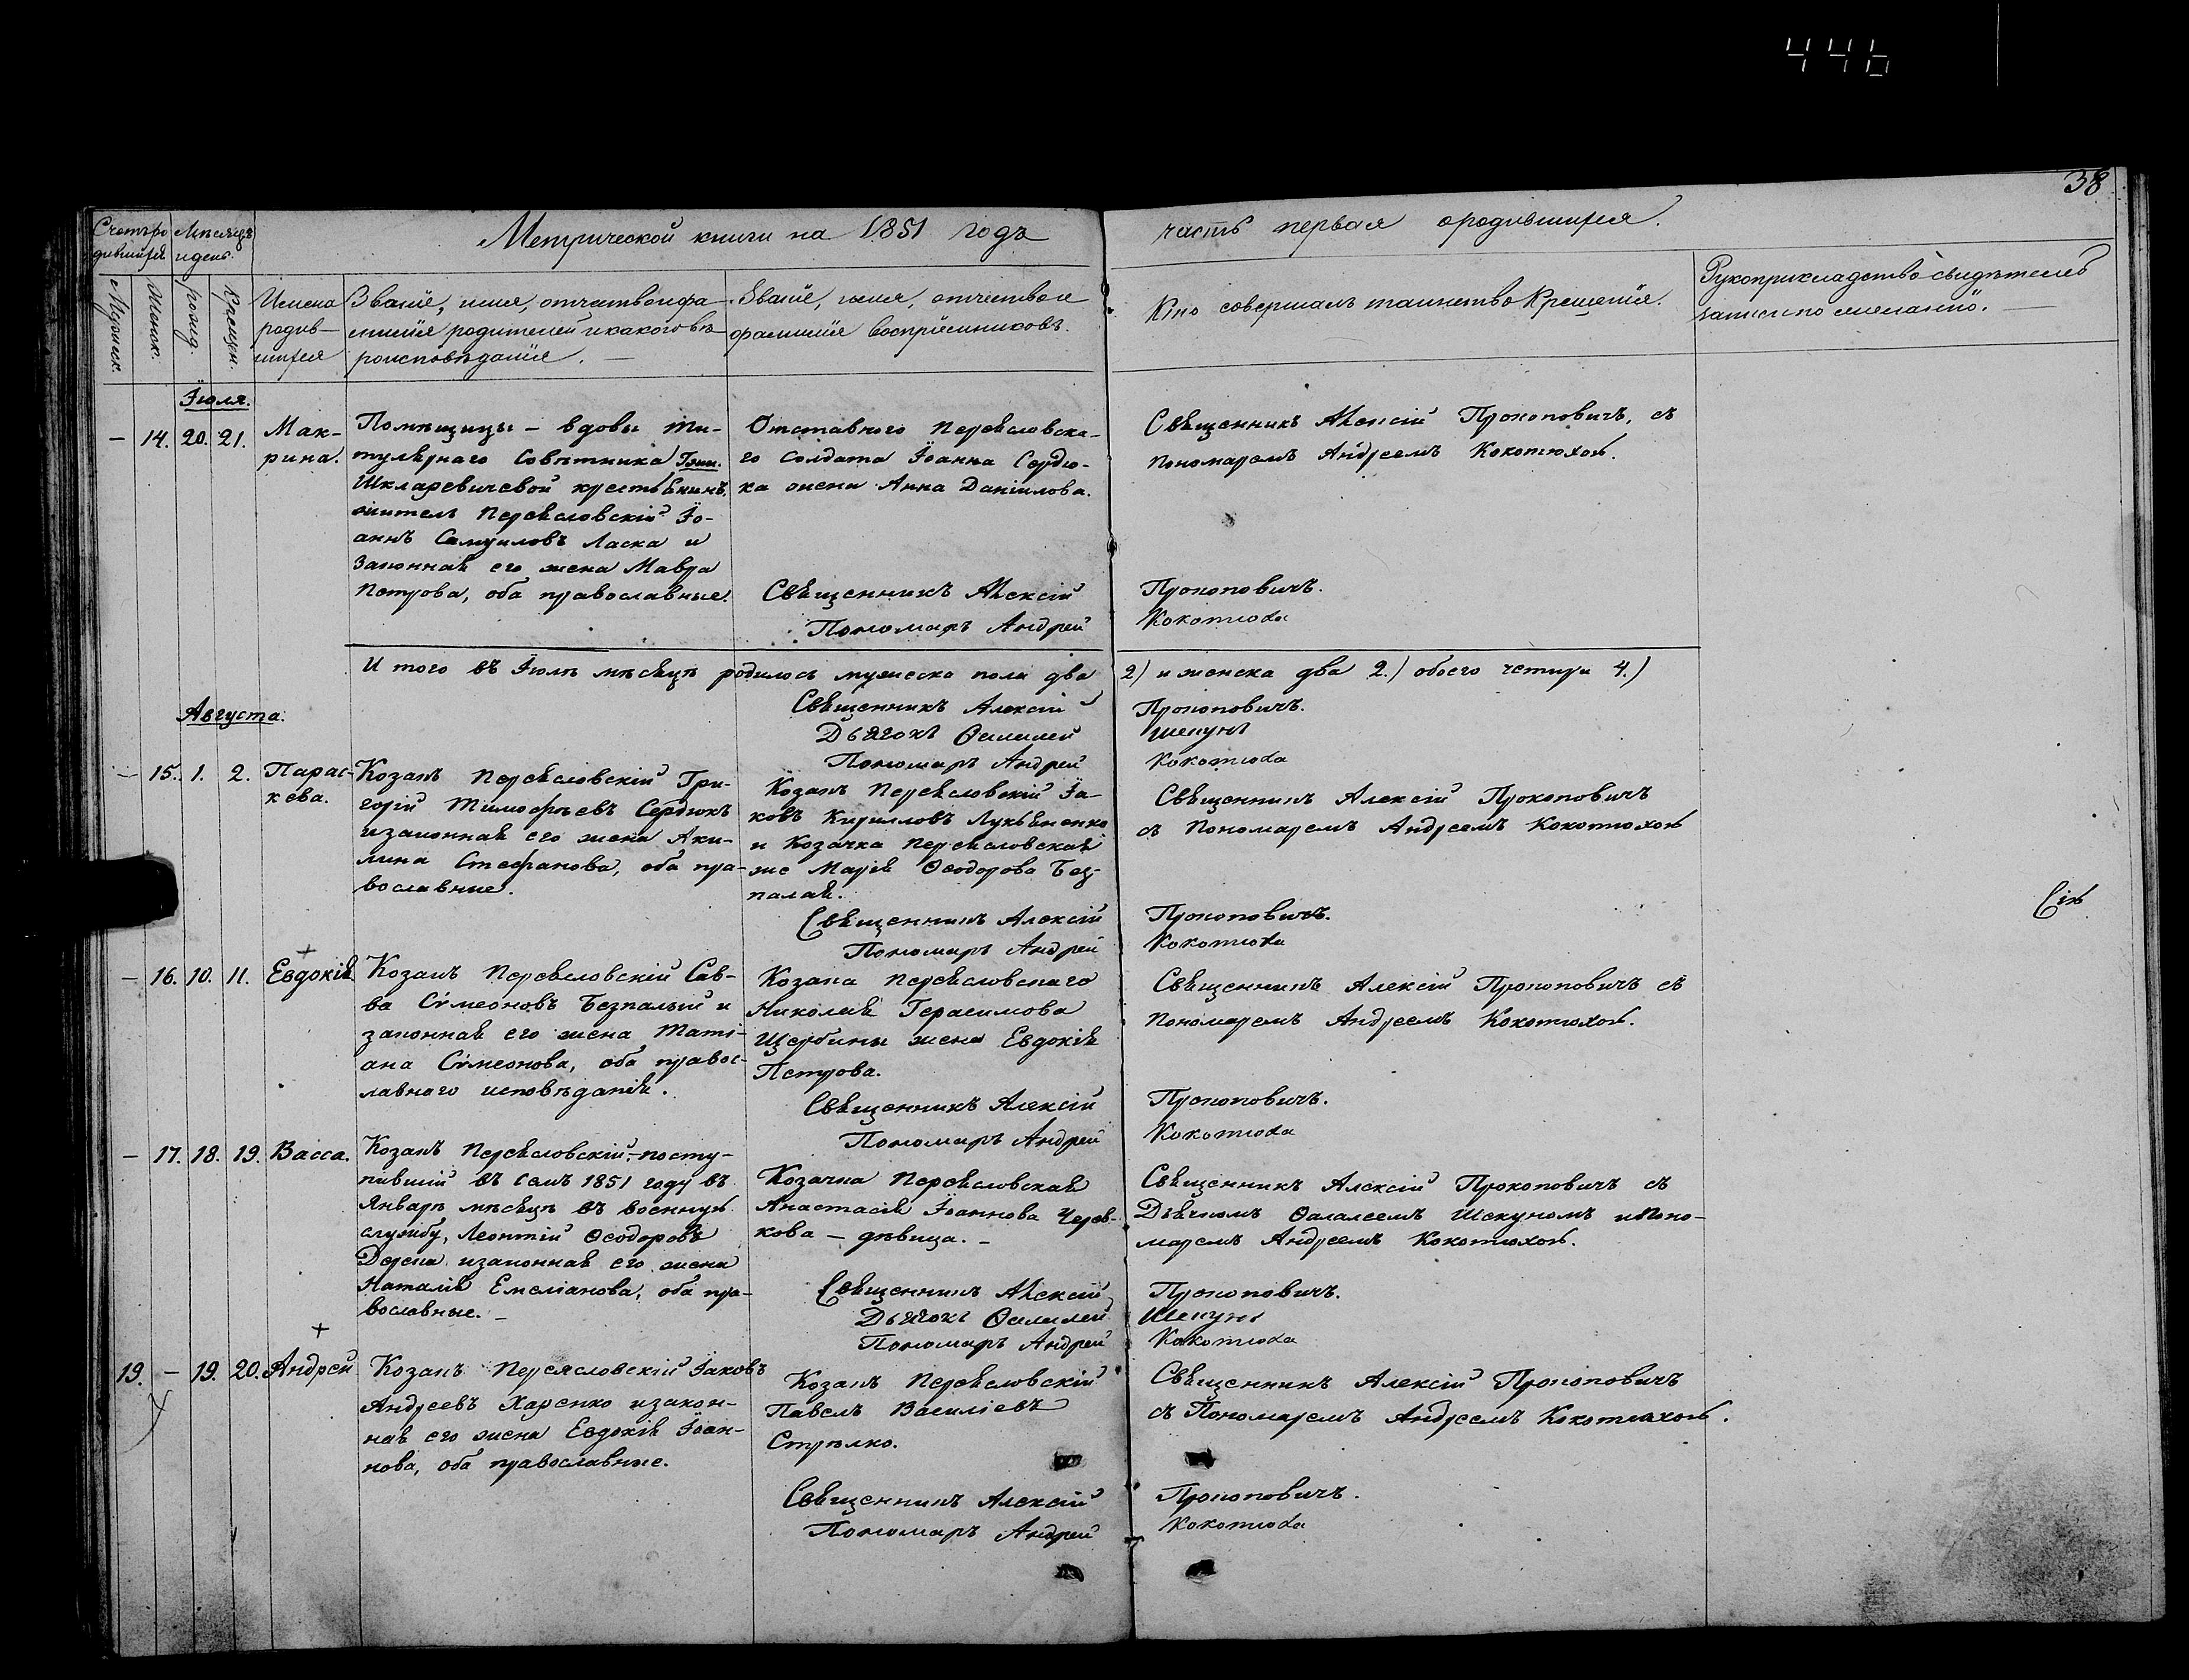 446
38
Метрической книги на 1851 годъ
часть первая о родившихся.
Счетъ ро
дившихся
Мѣсяцъ
и день.
Мужеск.
Женск.
рожд.
Крещен.
Имена
родив-
шихся
Званіе, имя, отчество и фа-
милія родителей и какого вѣ
роисповѣданія. —
Званіе, имя, отчество и
фамилія воспріемниковъ.
Кто совершалъ таинство Крещенія.
Рукоприкладство свидѣтелей
записи по желанію. —
Іюля.
— 14. 20. 21.
Мак-
рина.
Помѣщицы — вдовы Ти-
тулярнаго Совѣтника
Шкляревичевой крестьянинъ,
житель Переясловскій Іо-
аннъ Самуиловъ Ласка и
Законная его жена Мавра
Петрова, оба православные.
Отставного Переясловска-
го Солдата Іоанна Сердю-
ка жена Анна Даніилова.
Священникъ Алексій
Пономарь Андрей
Священникъ Алексій Прокоповичъ, съ
пономаремъ Андреемъ Кокотюхою.
Прокоповичъ.
Кокотюха
И того въ Іюлѣ мѣсяцѣ родилось мужеска пола два 2) и женска два 2.) обоего четыри 4.)
Священникъ Алексій Прокоповичъ.
Дьячокъ Фалалей Шекунъ
Пономарь Андрей Кокотюха
Августа.
— 15. 1. 2.
Парас-
кева.
Козакъ Переясловскій Гри-
горій Тимофѣевъ Сердюкъ
и законная его жена Аки-
лина Стефанова, оба пра-
вославные.
Козакъ Переясловскій Іа-
ковъ Кирилловъ Лукьяненко
и Козачка Переясловская
же Марія Ѳеодорова Без-
палая.
Священникъ Алексій
Пономарь Андрей
Священникъ Алексій Прокоповичъ
съ Пономаремъ Андреемъ Кокотюхою
Прокоповичъ.
Кокотюха
Сію
— 16. 10. 11.
+
Евдокія
Козакъ Переясловскій Сав-
ва Сѵмеоновъ Безпалый и
законная его жена Таті-
ана Сѵмеонова, оба правос-
лавнаго исповѣданія.
Козака Переясловскаго
Николая Герасимова
Щербины жена Евдокія
Петрова.
Священникъ Алексій
Пономарь Андрей
Священникъ Алексій Прокоповичъ съ
Пономаремъ Андреемъ Кокотюхою.
Прокоповичъ.
Кокотюха
— 17. 18. 19.
Васса.
Козакъ Переясловскій, посту-
пившій въ семъ 1851 году въ
Январѣ мѣсяцѣ въ военную
службу, Леонтій Ѳеодоровъ
и законная его жена
Наталія Емеліанова, оба пра-
вославные. —
Козачка Переясловская
Анастасія Іоаннова Черев-
кова — дѣвица. —
Священникъ Алексій
Дьячокъ Фалалей
Пономарь Андрей
Священникъ Алексій Прокоповичъ съ
Дьячкомъ Фалалеемъ Шекуномъ и Поно-
маремъ Андреемъ Кокотюхою.
Прокоповичъ.
Шекунъ
Кокотюха
19. — 19. 20.
+
Андрей
Козакъ Переясловскій Іаковъ
Андреевъ Харенко и закон-
ная его жена Евдокія Іоан-
нова, оба православные.
Козакъ Переясловскій
Павелъ Василіевъ
Стрѣлко.
Священникъ Алексій
Пономарь Андрей
Священникъ Алексій Прокоповичъ
съ Пономаремъ Андреемъ Кокотюхою.
Прокоповичъ.
Кокотюха